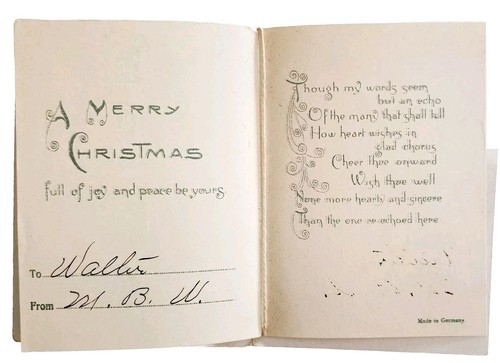 A MERRY
CHRISTMAS
full of joy and peace be yours
To Walter
From M. B. W.
Though my words seem
but an echo
Of the many that shall tell
How heart wishes in
glad chorus
Cheer thee onward
Wish thee well
None more hearty and sincere
Than the one re-echoed here
Made in Germany